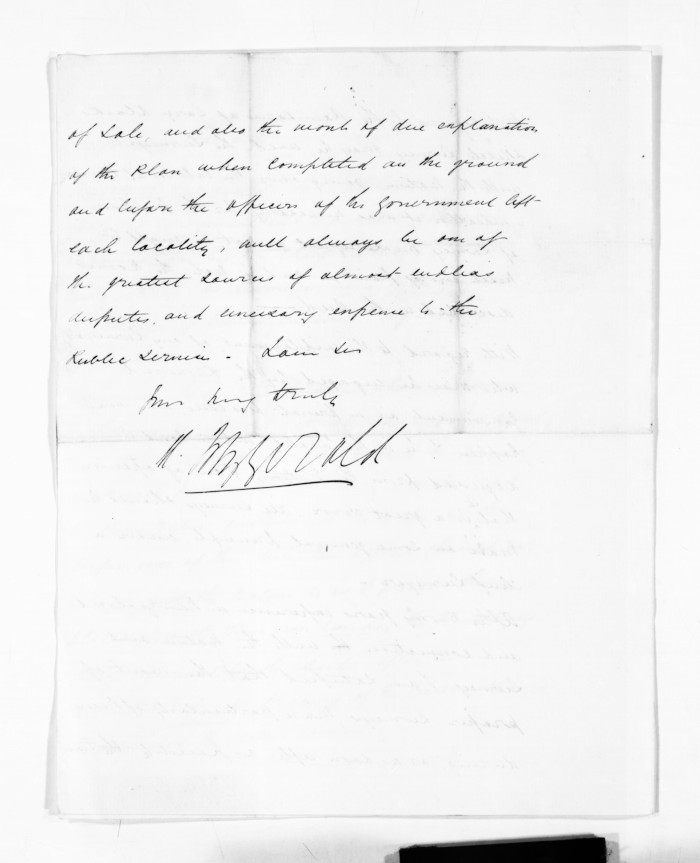 of Sale, and also the want of due explanation
of the Plan when completed on the ground
and before the officers of the Government left
each locality, will always be one of
the greatest sources of almost endless
disputes, and unecessary expense to the
Public Service. I am Sir
Yours very truly
Fitzgerald